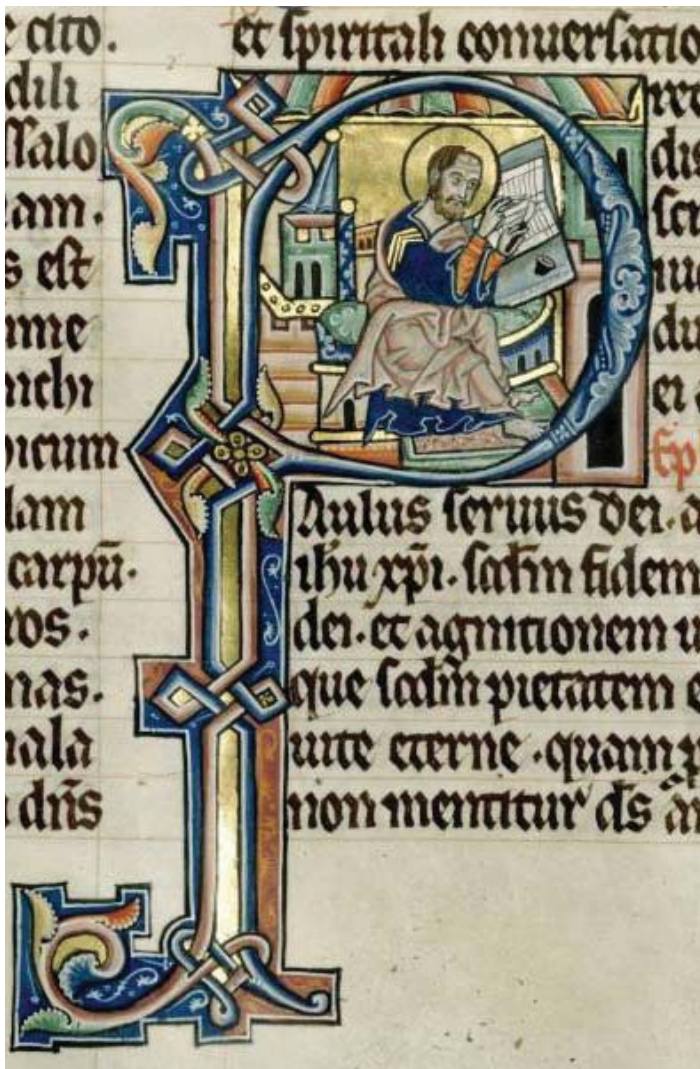 cito.
dili
ssalo
am.
s est
ime
michi
icum
lam
carpū.
ros.
nas.
mala
dn̄s
et spiritali conuersatio
ret
dis
scr
du
ei
Ep
Paulus seruus dei.
ihu xp̄i. scdm̄ fidem
dei. et agnitionem u
que scdm̄ pietatem e
uite eterne. quam p
non mentitur ds̄ an